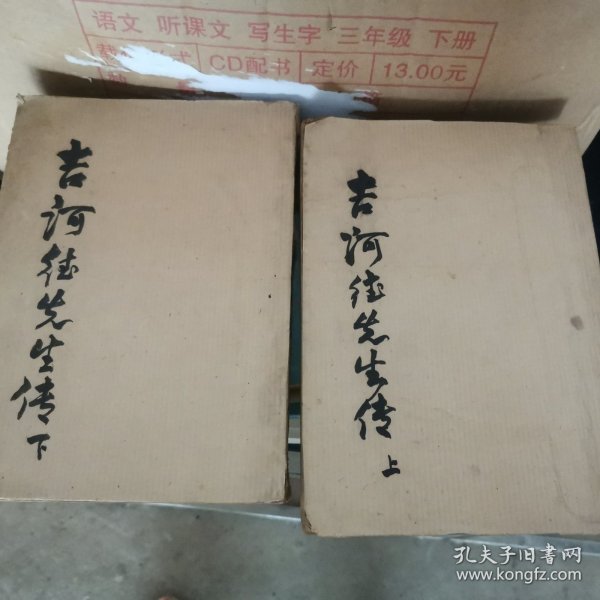 语文 听课文 写生字 三年级 下册
CD配书 定价 13.00元
吉河德先生传 下
吉河德先生传 上
孔夫子旧书网
www.kongfz.com